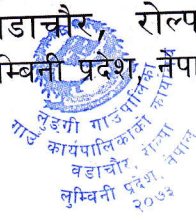 वडाचौर, रोल्प
म्बिनी प्रदेश, नेपा
लुङग्री गाउँपालिका
गाउँ कार्यपालिकाको कार्यालय
वडाचौर, रोल्पा
लुम्बिनी प्रदेश, नेपाल
२०७३